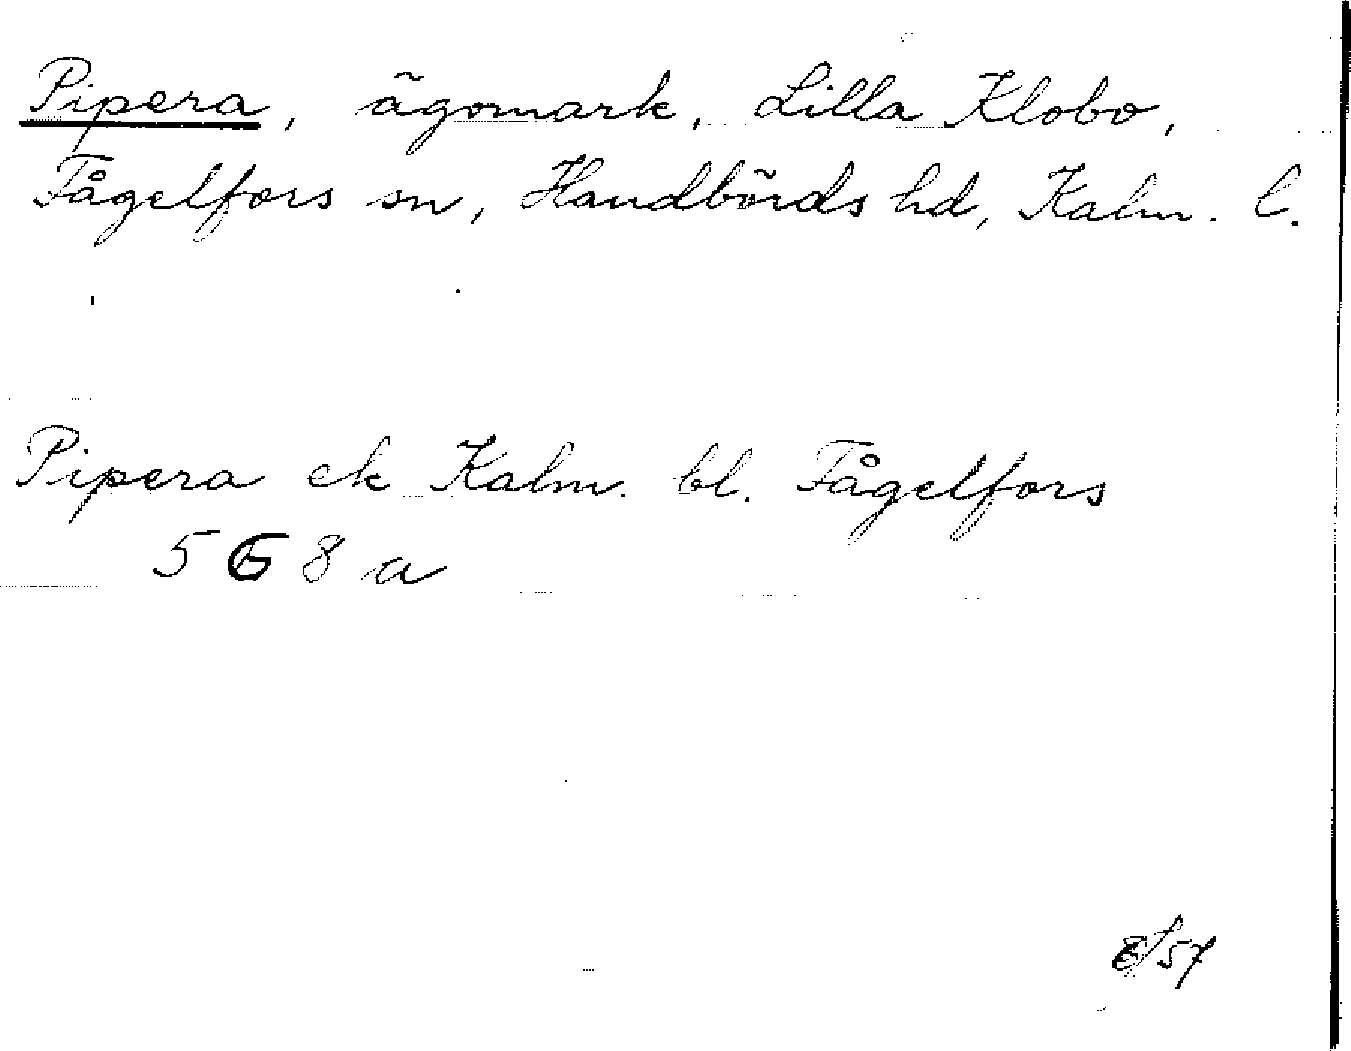 Pipera, ägomark, Lilla Klobo,
Fågelfors sn, Handbörds hd, Kalm. l.
Pipera ek Kalm. bl. Fågelfors
5 G 8 a
57